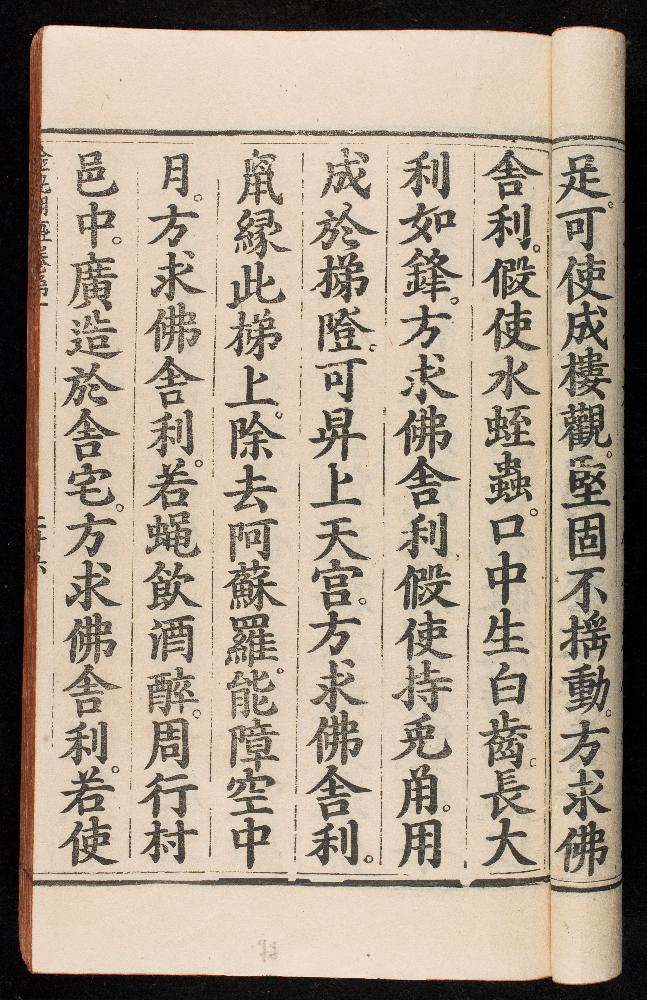 足。可使成樓觀。堅固不揺動。方求佛
舎利。假使水蛭蟲。口中生白齒。長大
利如鋒。方求佛舎利假使持兎角。用
成於梯隥。可昇上天宮。方求佛舎利。
鼠縁此梯上。除去阿蘇羅。能障空中
月。方求佛舎利。若蝿飲酒醉。周行村
邑中。廣造於舎宅。方求佛舎利。若使
金光明經卷第一
二十六